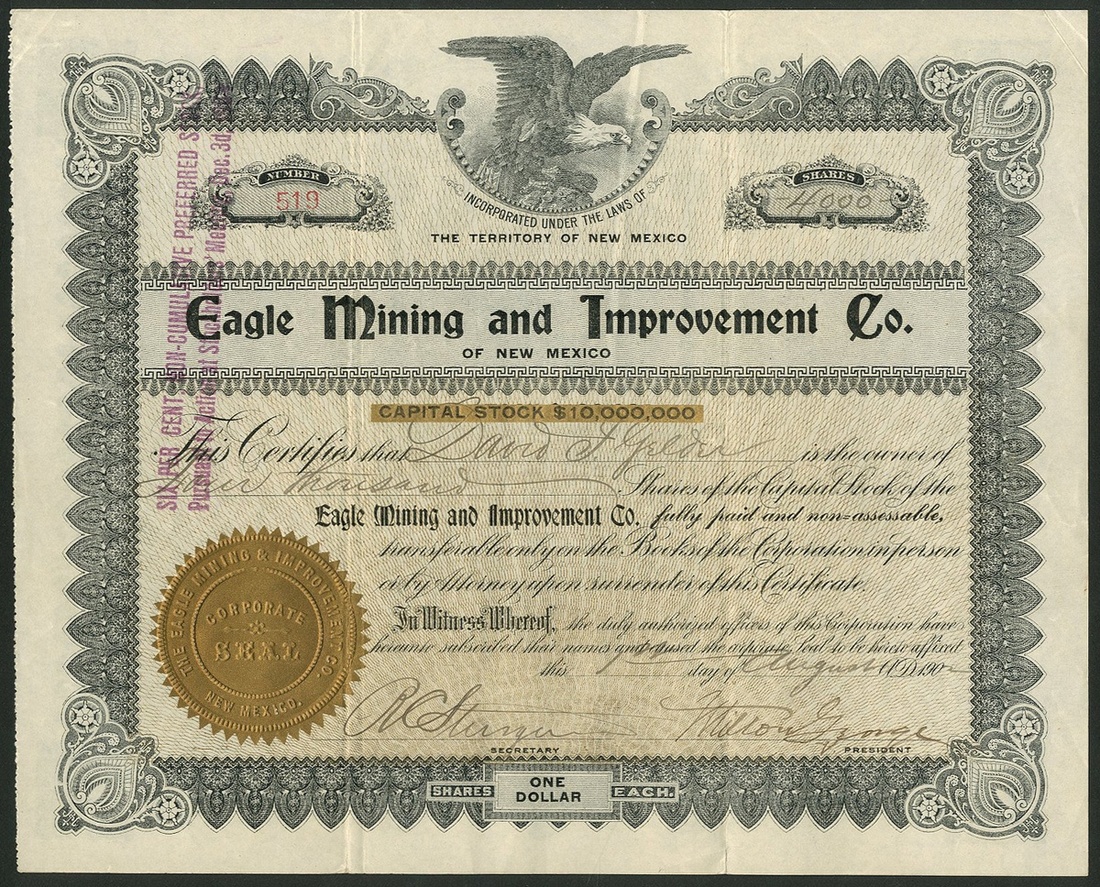 NUMBER
519
SHARES
4000
INCORPORATED UNDER THE LAWS OF
THE TERRITORY OF NEW MEXICO
Eagle Mining and Improvement Co.
OF NEW MEXICO
CAPITAL STOCK $10,000,000
This Certifies that David F. is the owner of
Four Thousand Shares of the Capital Stock of the
Eagle Mining and Improvement Co. fully paid and non=assessable,
transferable only on the Books of the Corporation in person
or by Attorney upon surrender of this Certificate.
In Witness Whereof, the duly authorized officers of this Corporation have
hereunto subscribed their names and caused the corporate Seal to be hereto affixed
this day of August A.D. 190
Milton George
SECRETARY
PRESIDENT
SHARES ONE DOLLAR EACH.
THE EAGLE MINING & IMPROVEMENT CO.
CORPORATE
SEAL
NEW MEXICO.
SIX PER CENT NON-CUMULATIVE PREFERRED
Pursuant to Action at Stockholders' Dec. 3d,